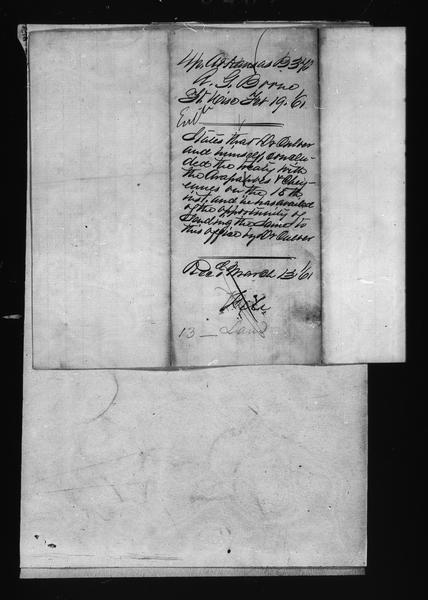 Up. Arkansas B 340
A. G. Boone
Ft. Wise Feb 19. /61
States that Dr Culver
and himself, conclu-
ded the treaty with
the Arapahoes & Chey-
ennes on the 18th
inst. and he has availed
of the opportunity of
sending the same to
this office by Dr Culver
Rec'd March 13 /61
File
13 — Land